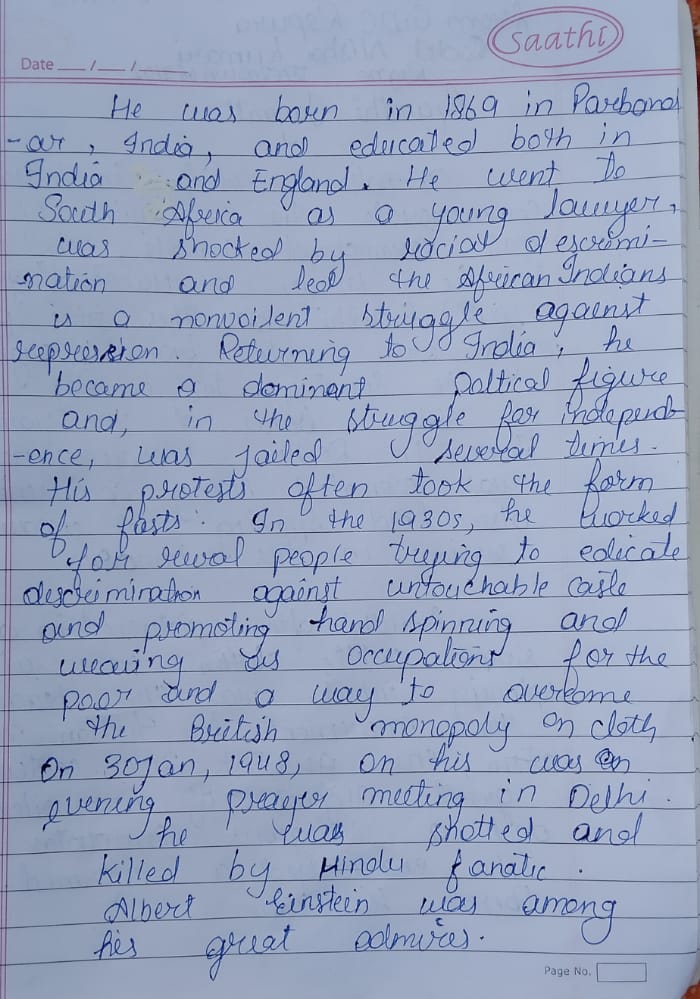 saathi
Date __/__/__
He was born in 1869 in Parband
-ar, India, and educated both in
India and England. He went to
South Africa as a young lawyer,
was shocked by racial descrimi-
nation and led the African Indians
is a nonvoilent struggle against
repression. Returning to India, he
became a dominant poltical figure
and, in the struggle for independ-
-ence, was jailed several times.
His protests often took the form
of fasts. In the 1930s, he worked
for rural people trying to edicate
descrimination against untouchable caste
and promoting hand spinning and
weaving as occupations for the
poor and a way to overcome
the British monopoly on cloth
On 30 Jan, 1948, on his was on
evening prayer meeting in Delhi.
he was shotted and
killed by Hindu fanatic.
Albert Einstein was among
his great admires.
Page No.